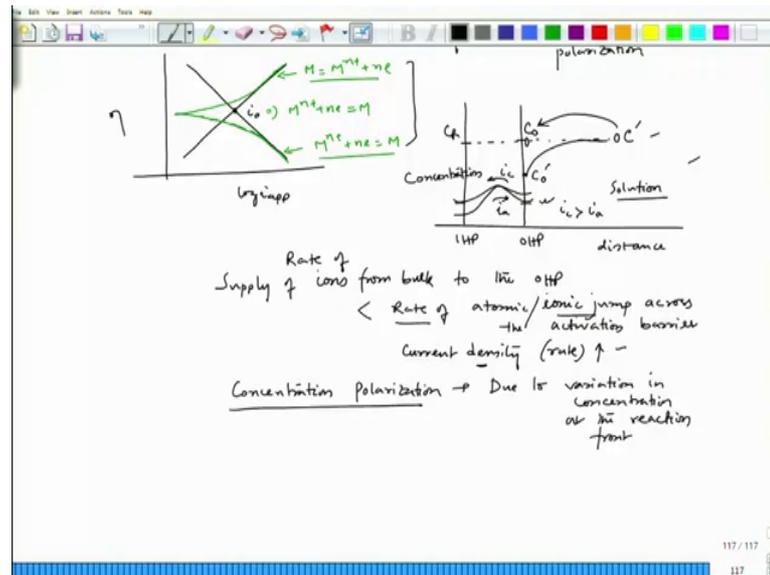 File Edit View Insert Actions Tools Help
polarization
M = Mⁿ⁺ + ne
i₀ Mⁿ⁺ + ne = M
Mⁿ⁺ + ne = M
η
log iapp
C₀
C'
C₀'
Concentration
ic
ia
ic > ia
Solution
IHP
OHP
distance
Rate of
Supply of ions from bulk to the OHP
< Rate of atomic/ionic jump across
the activation barrier
Current density (rate) ↑ -
Concentration Polarization → Due to variation in
concentration
at the reaction
front
117 / 117
117